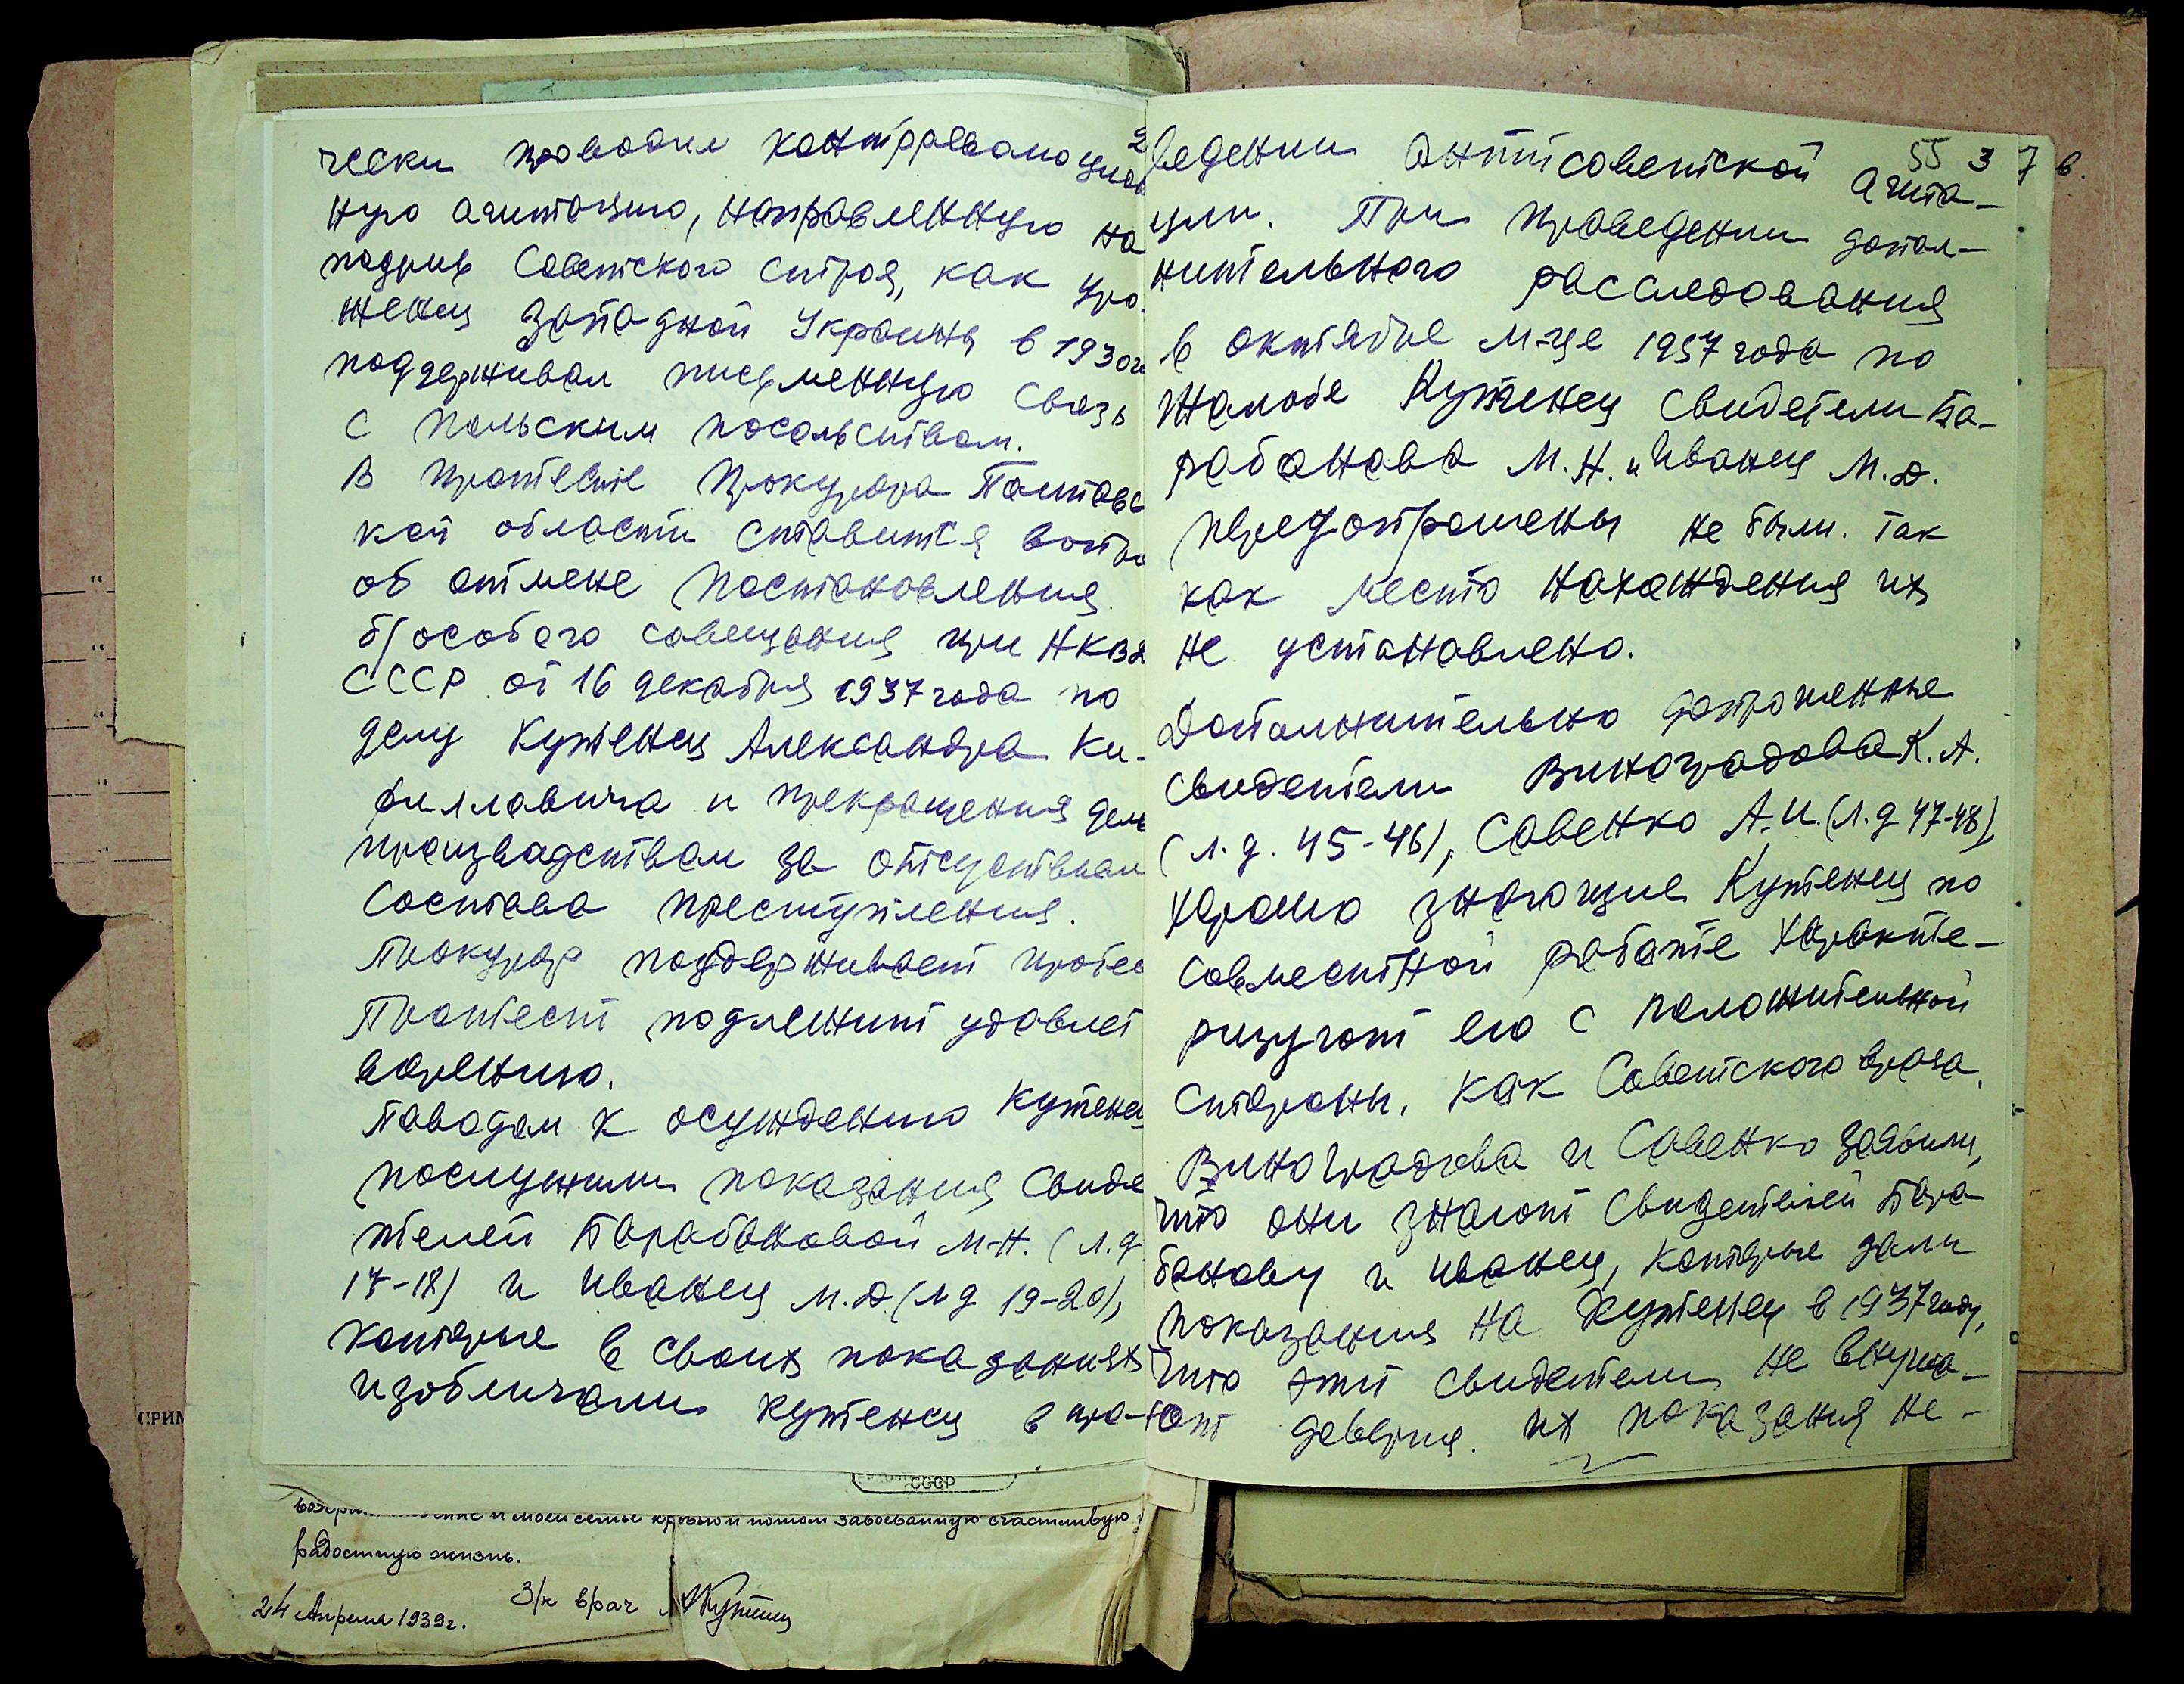 2
чески проводил контрреволюцион
ную агитацию, направленную на
подрыв Советского строя, как уро-
женец западной Украины в 1930г
поддерживал письменную связь
с польским посольством.
В протесте прокурора Полтавс
кой области ставится вопро
об отмене постановления
б/особого совещания при НКВД
СССР от 16 декабря 1937 года по
делу Кутенец Александра Ки-
рилловича и прекращения дела
производством за отсутствием
состава преступления.
Прокурор поддерживает протес
Протест подлежит удовлет
ворению.
Поводом к осуждению Кутенец
послужили показания свиде
телей Барабановой М.Н. (л.д
17-18) и Иванец М.Д. (л д 19-20),
которые в своих показаниях
изобличали Кутенец в про-
55 3 7 в.
ведении антисоветской агита-
ции. При проведении допол-
нительного расследования
в октябре м-це 1957 года по
жалобе Кутенец свидетели Ба-
рабанова М.Н. и Иванец М.Д.
передопрошены не были. так
как место нахождения их
не установлено.
Дополнительно допрошенные
свидетели Виноградова К.А.
(л.д. 45-46), Савенко А.И. (л.д 47-48)
хорошо знающие Кутенец по
совместной работе характе-
ризуют его с положительной
стороны, как Советского врача.
Виноградова и Савенко заявили,
что они знают свидетелей Бара
банову и Иванец, которые дали
показания на Кутенец в 1937 году,
что эти свидетели не внуша-
ют доверия. их показания не-
СССР
и моей семье кровью и потом завоеванную счастливую
радостную жизнь.
24 Апреля 1939г. З/к врач Кутенец
СРИМ